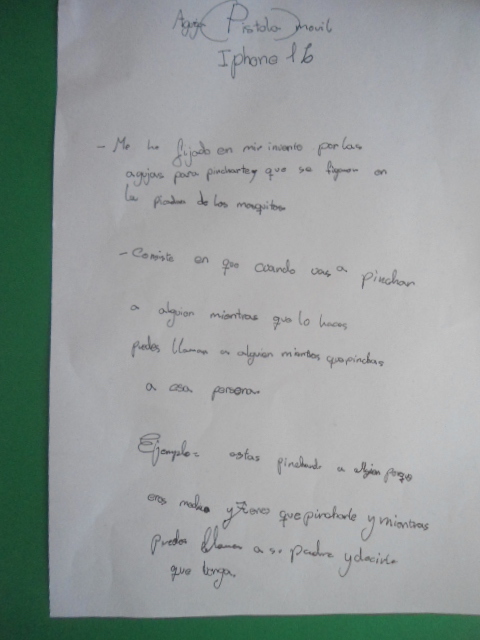 Aguja (Pistola) movil
Iphone 16
- Me he fijado en mi invento por las
agujas para pincharte y que se fijaron en
la picadura de los mosquitos
- Consiste en que cuando vas a pinchar
a alguien mientras que lo haces
puedes llamar a alguien mientras que pinchas
a esa persona.
Ejemplo: estas pinchando a alguien porque
eres medico y tienes que pincharle y mientras
puedes llamar a su padre y decirle
que venga.